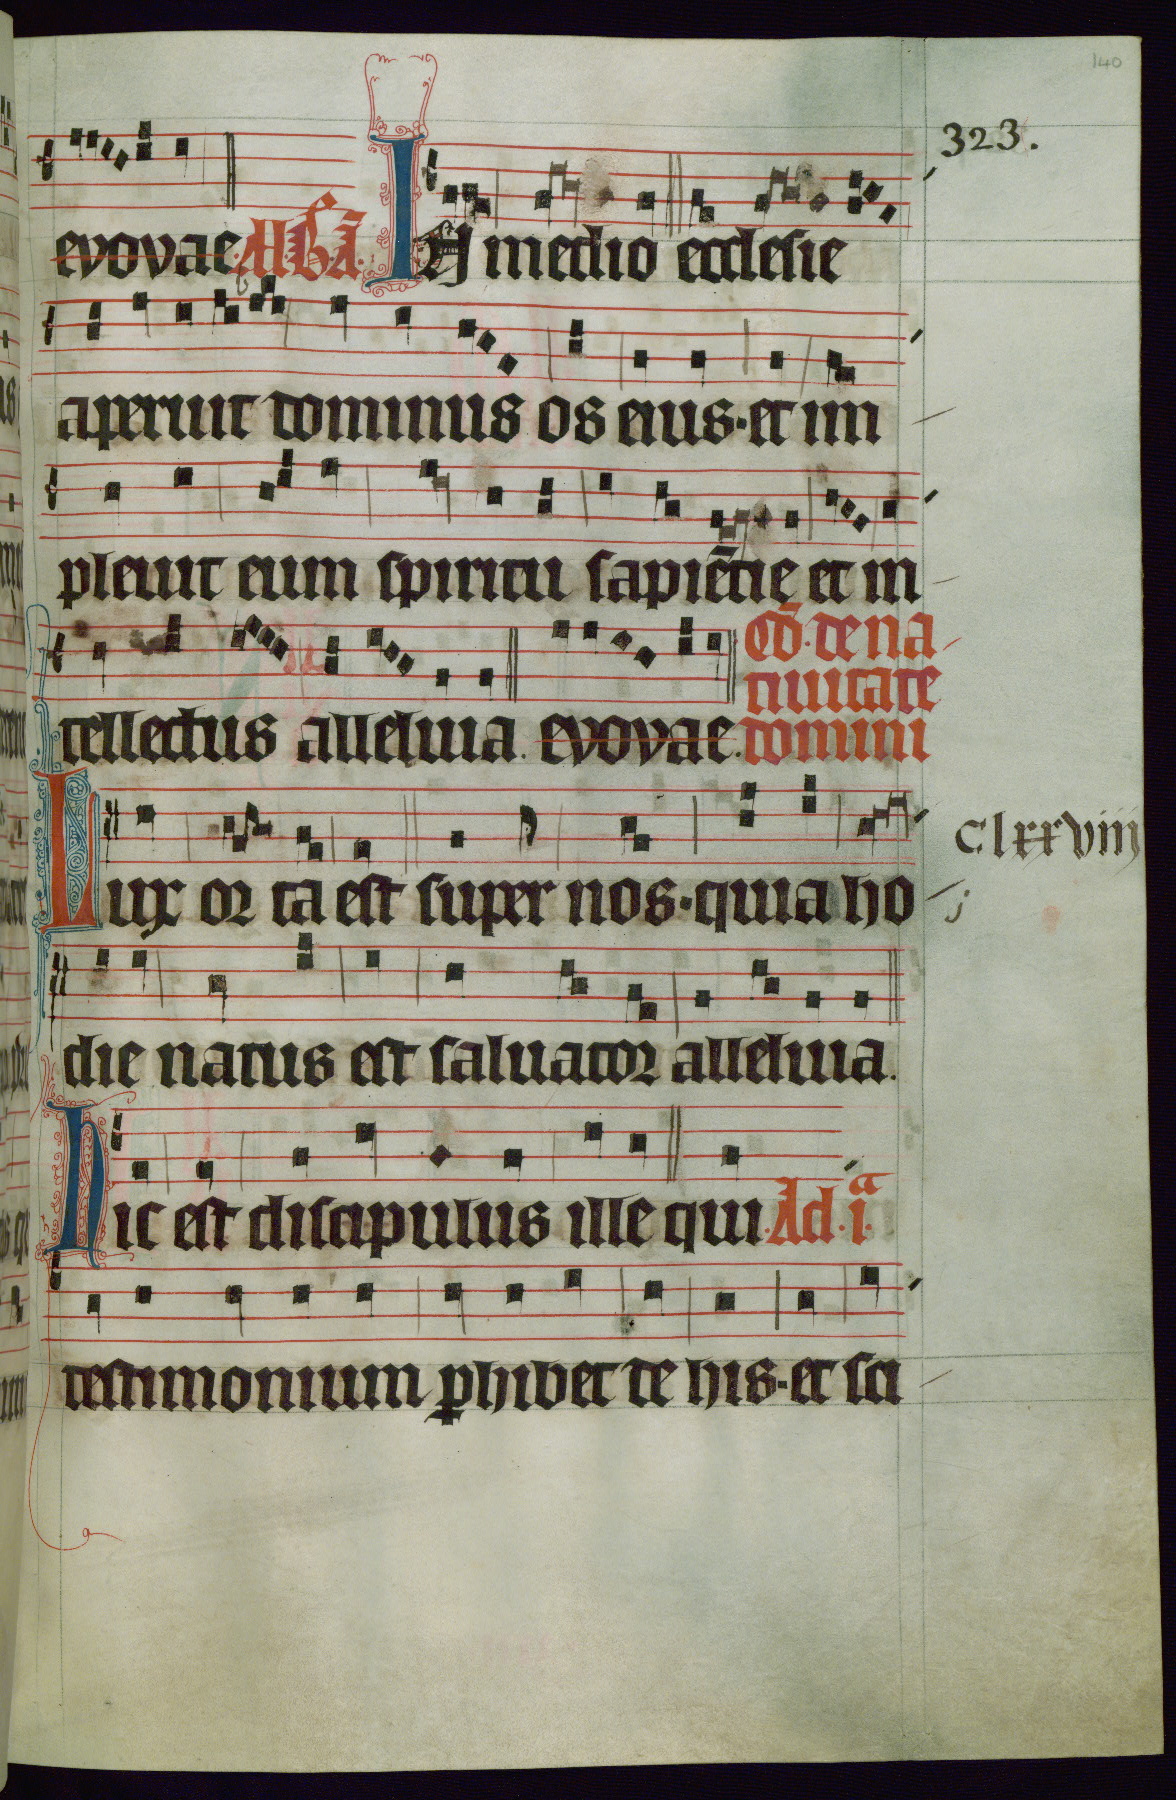 140
323.
evovae. A.B.A. IN medio ecclesie
aperuit dominus os eius · et im
pleuit eum spiritu sapiẽtie et in
tellectus alleluia. evovae.
Cõ. de na
tiuitate
domini
Lux or ta est super nos · quia ho
Clxxviiij
die natus est saluator alleluia.
Hic est discipulus ille qui. Ad .iᵃ.
testimonium ꝑhibet de his · et sci